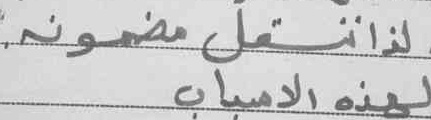 لذا ننقل مضمونه.
لهذه الاسباب